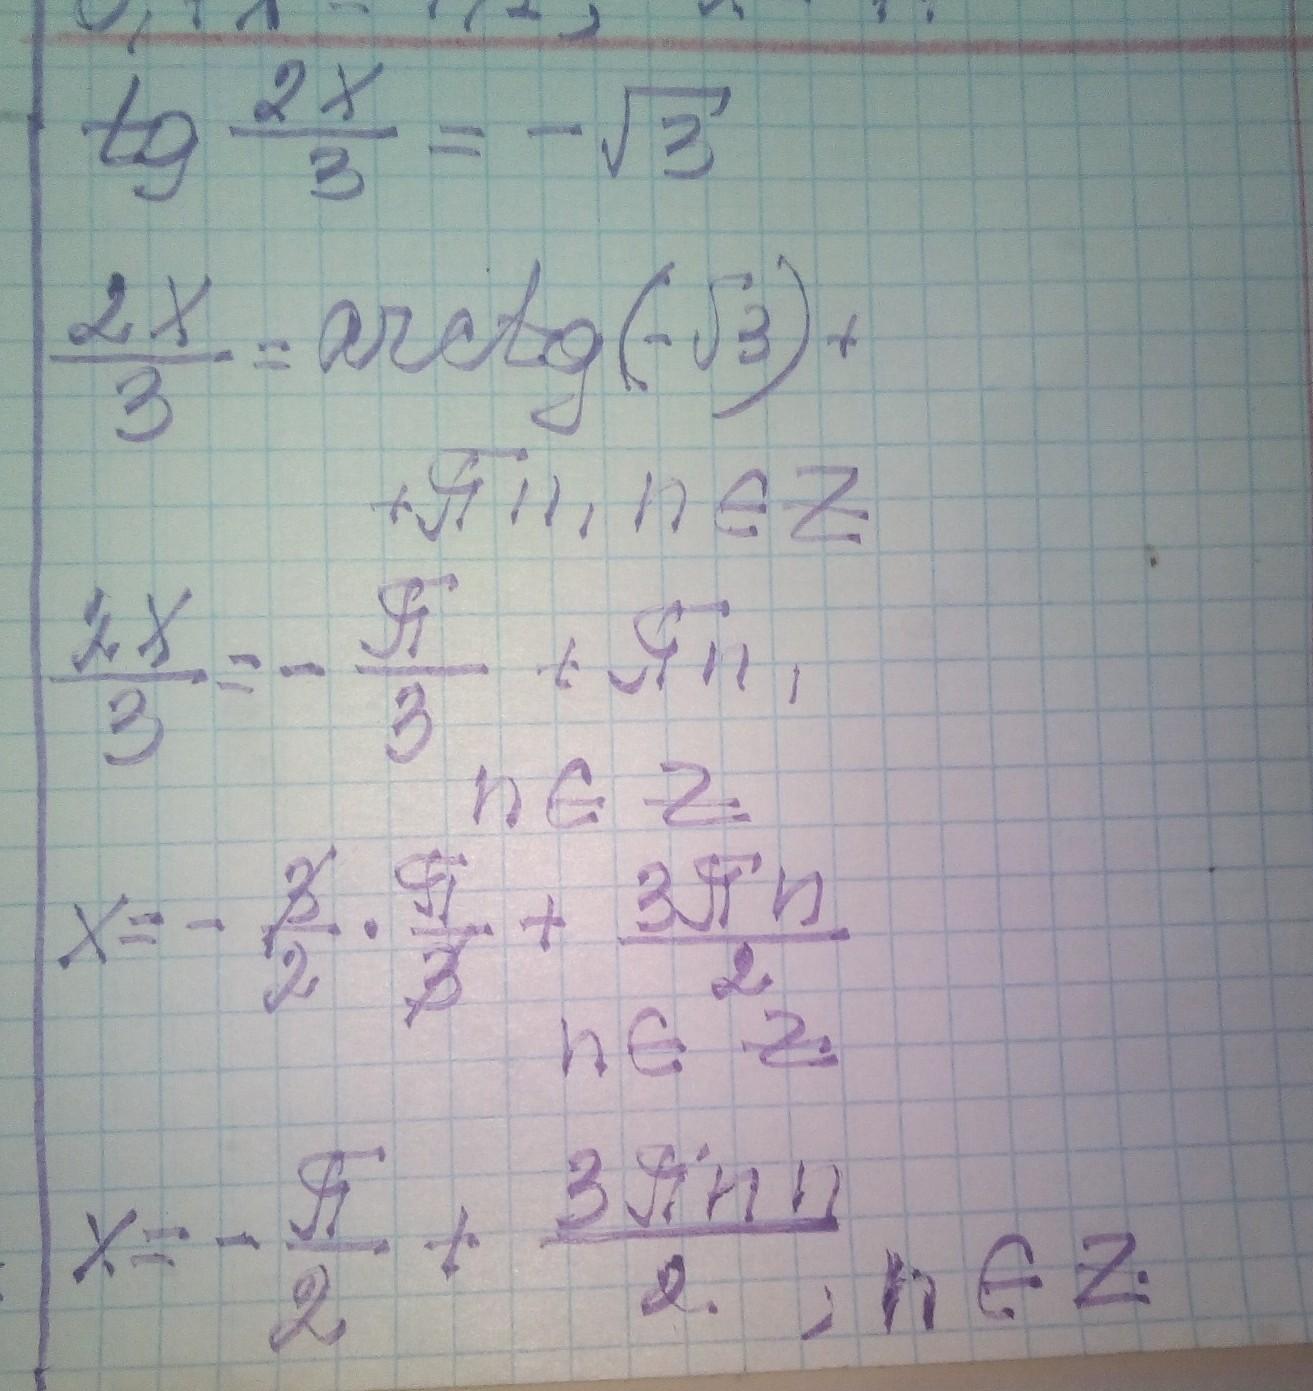 tg 2x/3 = -√3
2x/3 = arctg(-√3) +
+ πn, n ∈ Z
2x/3 = - π/3 + πn,
n ∈ Z
x = - 3/2 · π/3 + 3πn/2
n ∈ Z
x = - π/2 + 3πnn/2, n ∈ Z